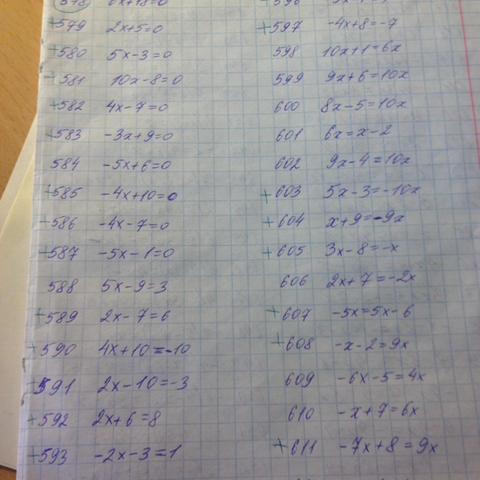 578 6x+18=0
+579 2x+5=0
+580 5x-3=0
+581 10x-8=0
+582 4x-7=0
+583 -3x+9=0
584 -5x+6=0
+585 -4x+10=0
+586 -4x-7=0
+587 -5x-1=0
588 5x-9=3
+589 2x-7=6
+590 4x+10=-10
+591 2x-10=-3
+592 2x+6=8
+593 -2x-3=1
596
+597 -4x+8=-7
598 10x+1=6x
599 9x+6=10x
600 8x-5=10x
601 6x=x-2
602 9x-4=10x
+603 5x-3=-10x
+604 x+9=-9x
+605 3x-8=-x
606 2x+7=-2x
+607 -5x=5x-6
+608 -x-2=9x
609 -6x-5=4x
610 -x+7=6x
+611 -7x+8=9x